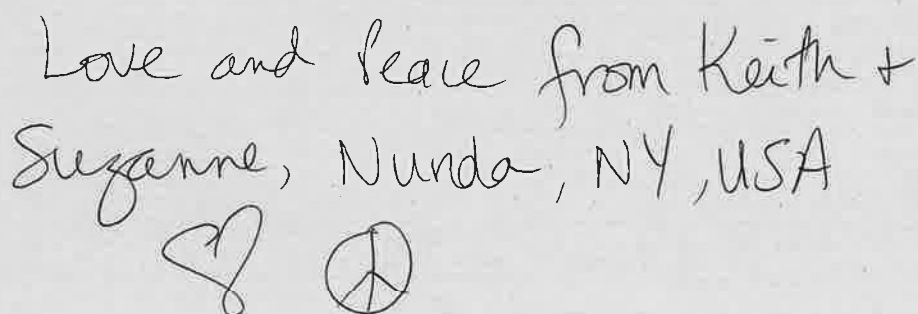 Love and Peace from Keith +
Suzanne, Nunda, NY, USA